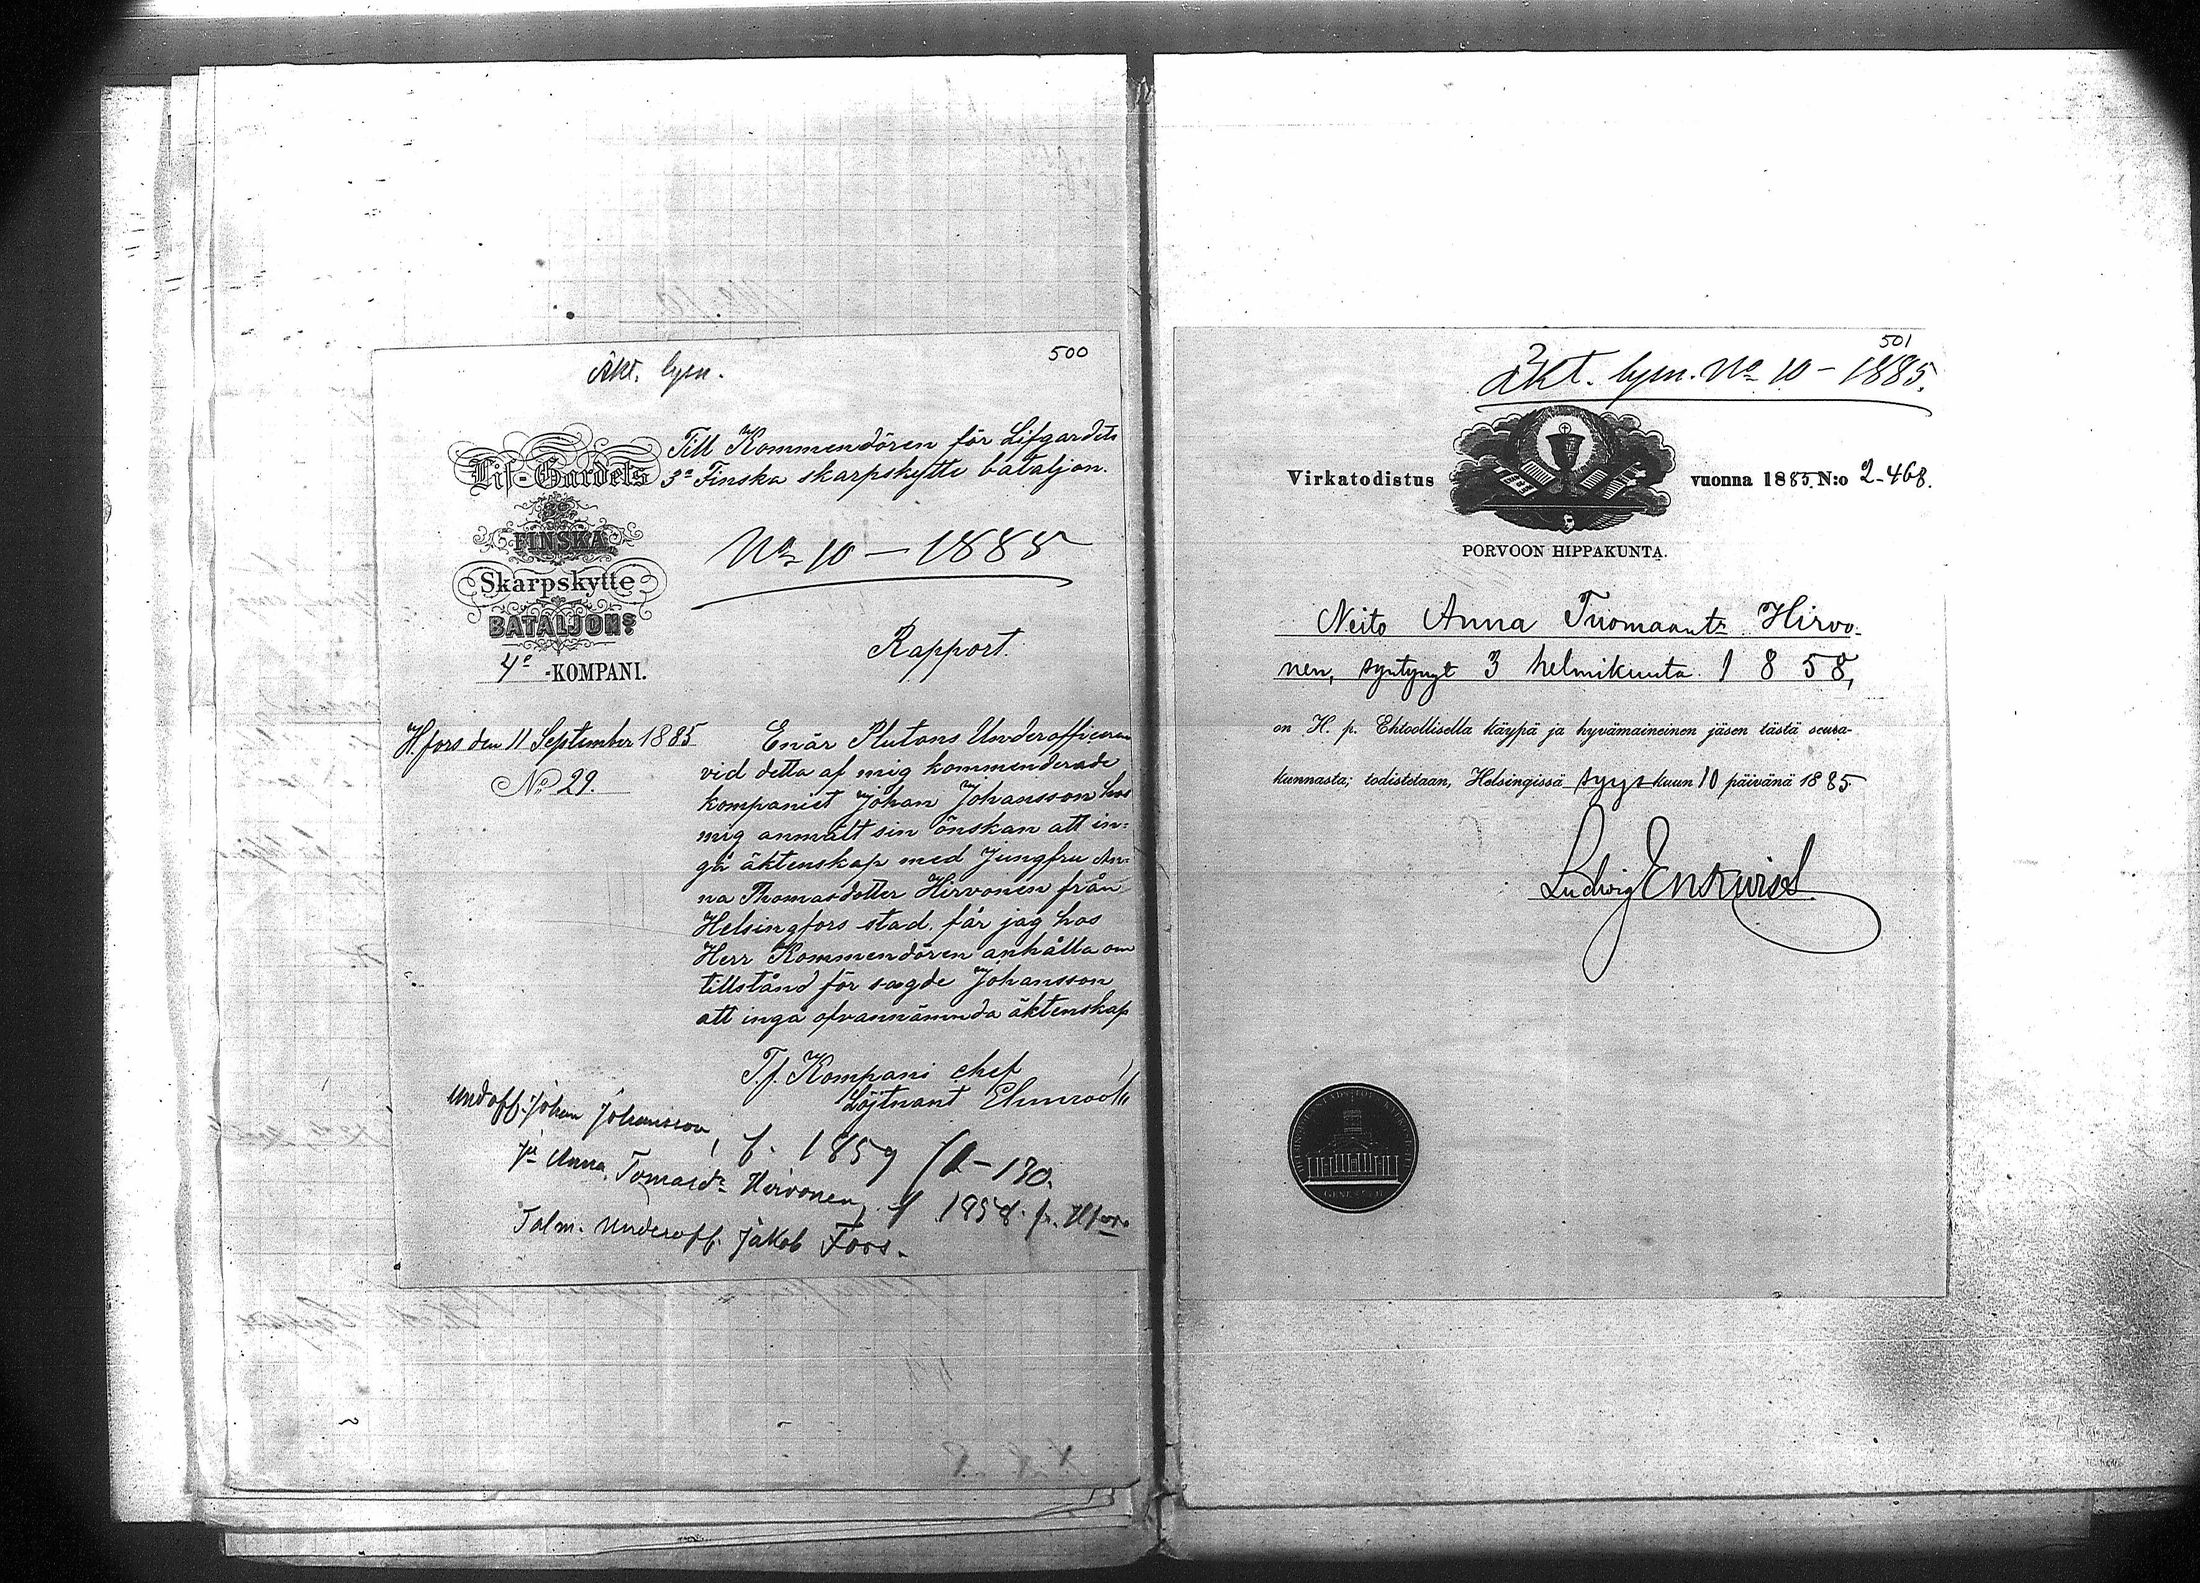 500
Äkt. lysn.
Lif-Gardets
3e
FINSKA
Skarpskytte
BATALJONS
4e -KOMPANI.
Till Kommendören för Lifgardets
3e Finska skarpskytte bataljon.
No 10 – 1885
Rapport.
H.fors den 11 September 1885
No 29.
Enär Plutons Underofficeren
vid detta af mig kommenderade
kompaniet Johan Johansson hos
mig anmält sin önskan att in-
gå äktenskap med Jungfru An-
na Thomasdotter Hirvonen från
Helsingfors stad, får jag hos
Herr Kommendören anhålla om
tillstånd för sagde Johansson
att ingå ofvannämnda äktenskap
T.f. Kompani chef
Löjtnant
Undoff. Johan Johansson, f. 1859 130.
Ju Anna Tomasdr Hirvonen, f. 1858. fr. Hfors
Talm. Underoff. Jakob Foos.
501
Äkt. lysn. No 10 – 1885.
Virkatodistus vuonna 1885. N:o 2-468.
PORVOON HIPPAKUNTA.
Neito Anna Tuomaantr Hirvo-
nen, syntynyt 3 helmikuuta 1858,
on H. p. Ehtoollisella käypä ja hyvämaineinen jäsen tästä seura-
kunnasta; todistetaan, Helsingissä syys kuun 10 päivänä 1885.
Ludvig Enkvist